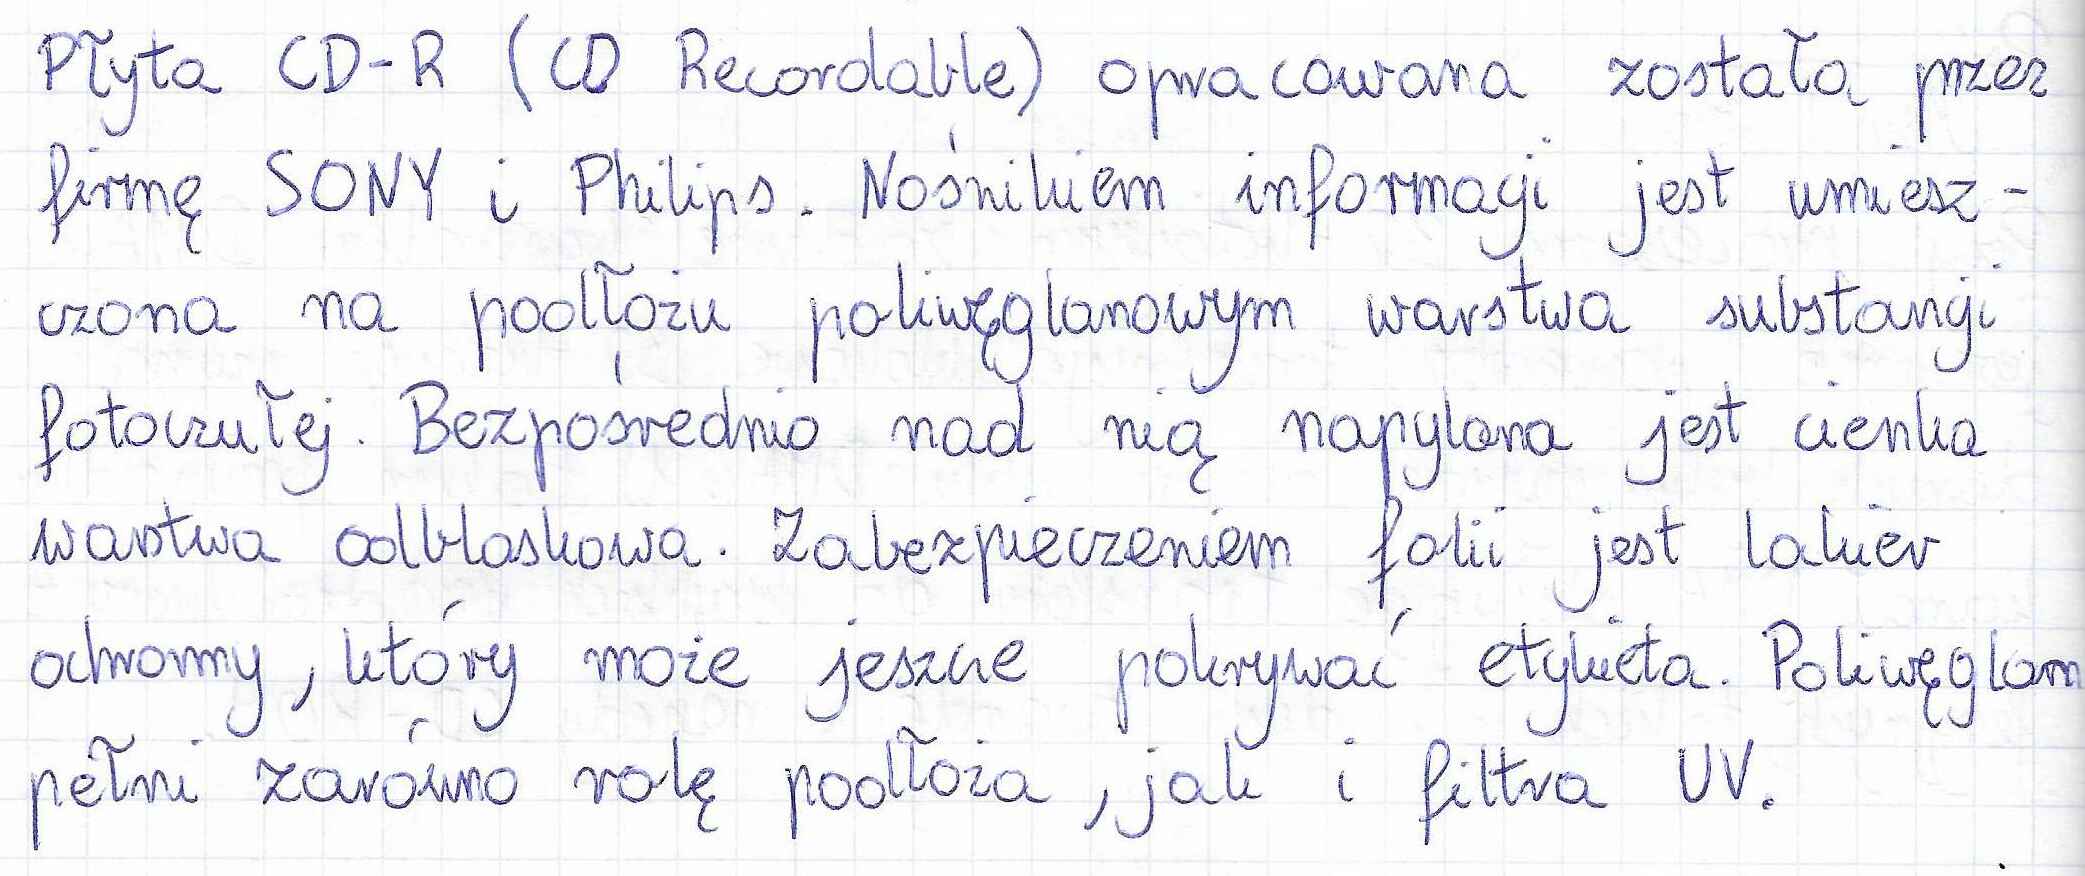 Płyta CD-R (CD Recordable) opracowana została przez
firmę SONY i Philips. Nośnikiem informacji jest umiesz-
czona na podłożu poliwęglanowym warstwa substancji
fotoczułej. Bezpośrednio nad nią napylona jest cienka
warstwa odblaskowa. Zabezpieczeniem folii jest lakier
ochronny, który może jeszcze pokrywać etykieta. Poliwęglan
pełni zarówno rolę podłoża, jak i filtra UV.